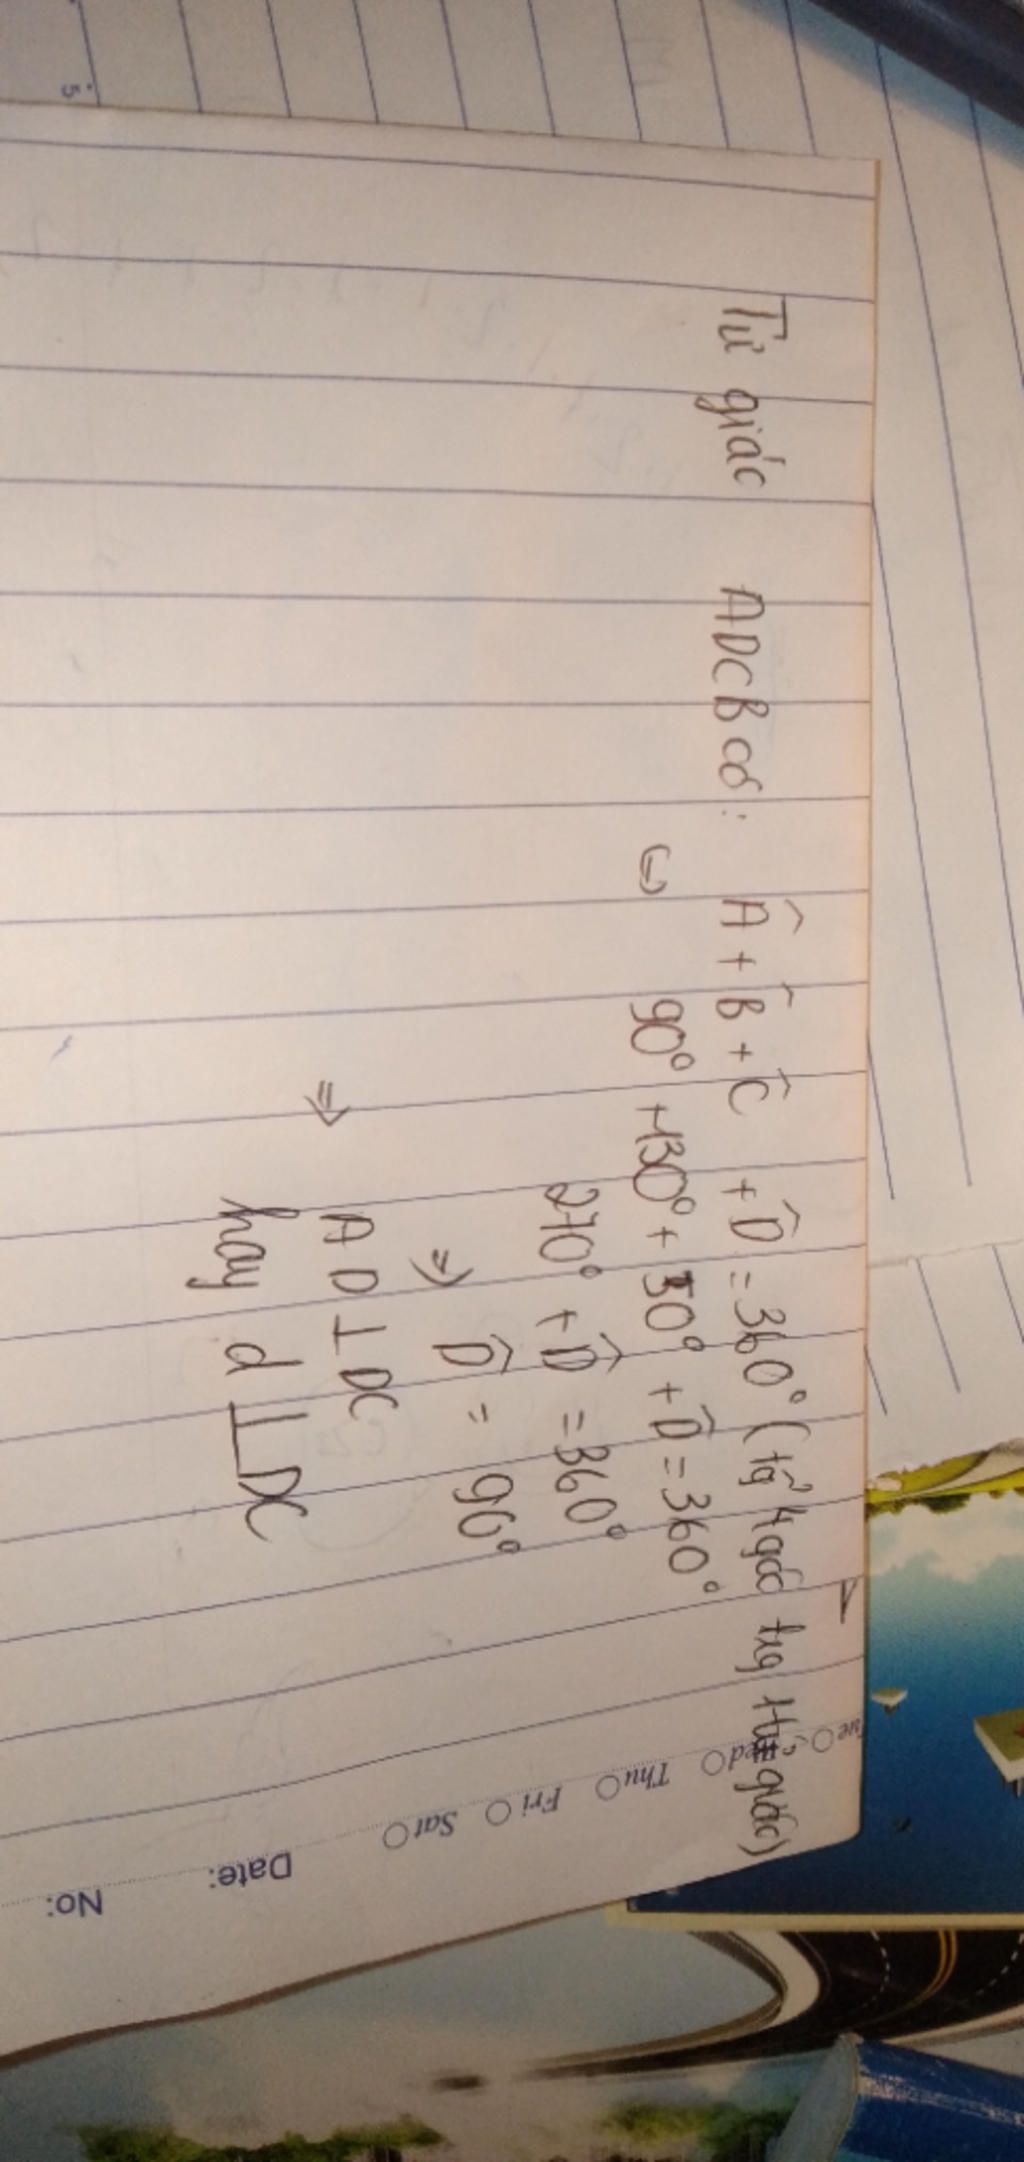 Tứ giác ADCB có: Â + B̂ + Ĉ + D̂ = 360° (tg² 4 góc trg tứ giác)
90° + 130° + 50° + D̂ = 360°
270° + D̂ = 360°
=> D̂ = 90°
=> AD ⊥ DC
hay d ⊥ DC
Thu Fri Sat
Date:
No: